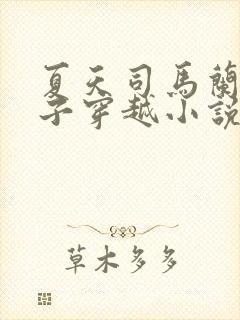 夏天司馬蘭
子穿越小說
草木多多